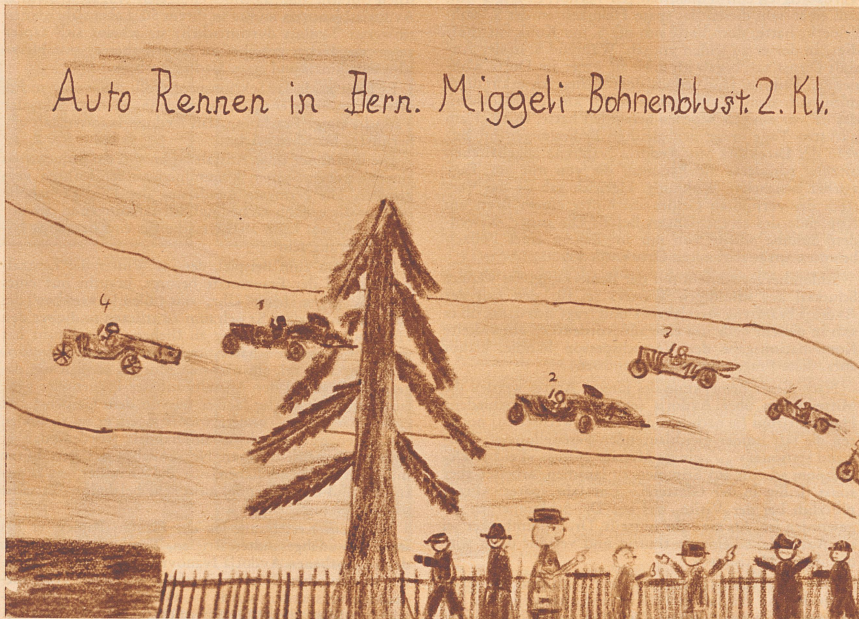 Auto Rennen in Bern. Miggeli Bohnenblust. 2. Kl.
4
1
2
3